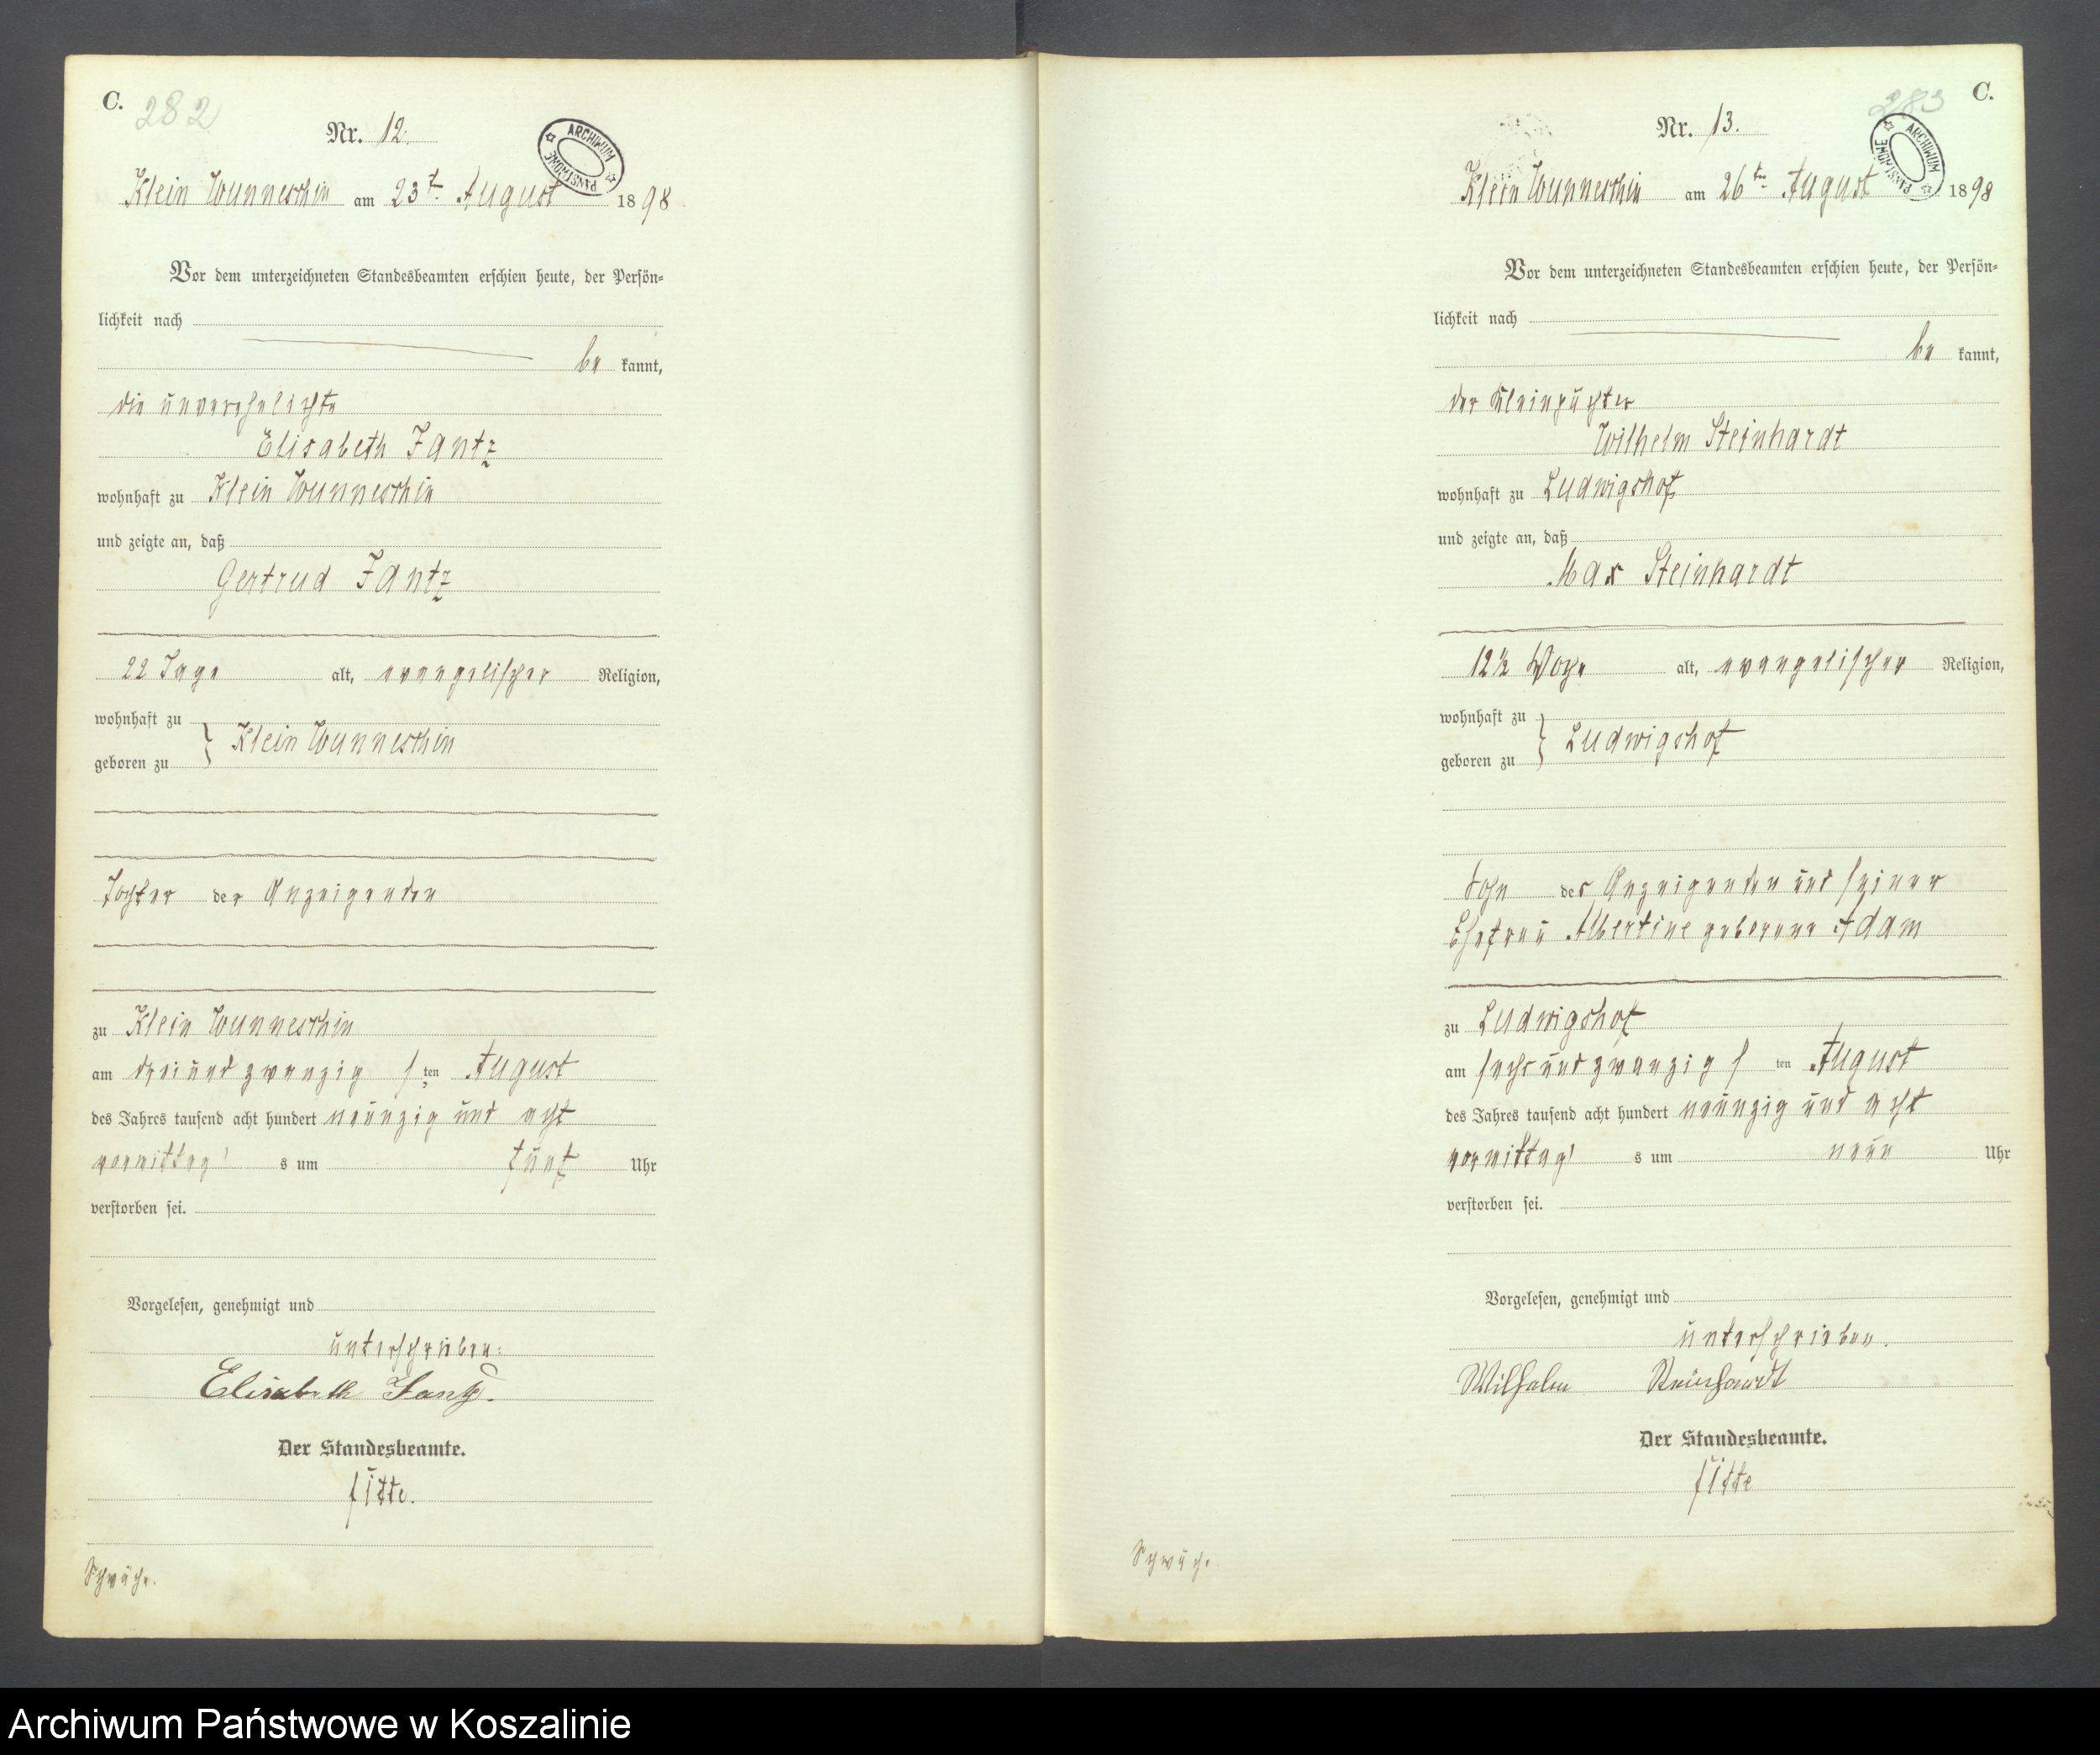 C. 282
Nr. 12.
ARCHIWUM PAŃSTWOWE
Klein Wunneschin am 23t. August 1898
Vor dem unterzeichneten Standesbeamten erschien heute, der Persön-
lichkeit nach
be kannt,
die unverehelichte
Elisabeth Jantz
wohnhaft zu Klein Wunneschin
und zeigte an, daß
Gertrud Jantz
22 Tage alt, evangelischer Religion,
wohnhaft zu
Klein Wunneschin
geboren zu
Tochter der Anzeigenden
zu Klein Wunneschin
am drei und zwanzig s ten August
des Jahres tausend acht hundert neunzig und acht
vormittag s um fünf Uhr
verstorben sei.
Vorgelesen, genehmigt und
unterschrieben.
Elisabeth Jantz.
Der Standesbeamte.
Schwäche.
283 C.
Nr. 13.
ARCHIWUM PAŃSTWOWE
Klein Wunneschin am 26ten August 1898
Vor dem unterzeichneten Standesbeamten erschien heute, der Persön-
lichkeit nach
be kannt,
der Kleinpächter
Wilhelm Steinhardt
wohnhaft zu Ludwigshof
und zeigte an, daß
Max Steinhardt
12½ Woche alt, evangelischer Religion,
wohnhaft zu
Ludwigshof
geboren zu
Sohn des Anzeigenden und seiner
Ehefrau Albertine geborene Adam
zu Ludwigshof
am sechs und zwanzig s ten August
des Jahres tausend acht hundert neunzig und acht
vormittag s um neun Uhr
verstorben sei.
Vorgelesen, genehmigt und
unterschrieben.
Wilhelm Steinhardt
Der Standesbeamte.
Schwäche.
Archiwum Państwowe w Koszalinie